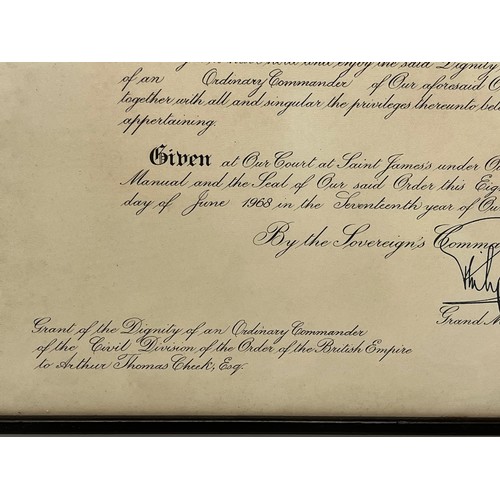 and enjoy the said Dignity
of an Ordinary Commander of Our aforesaid O
together with all and singular the privileges thereunto bel
appertaining.
Given at Our Court at Saint James's under O
Manual and the Seal of Our said Order this Eig
day of June 1968 in the Seventeenth year of Ou
By the Sovereign's Comma
Philip
Grand M
Grant of the Dignity of an Ordinary Commander
of the Civil Division of the Order of the British Empire
to Arthur Thomas Cheek, Esq.